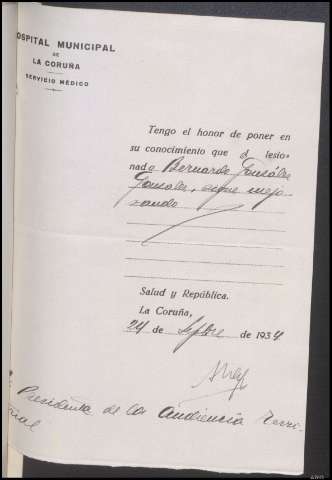 HOSPITAL MUNICIPAL
DE
LA CORUÑA
SERVICIO MÉDICO
Tengo el honor de poner en
su conocimiento que el lesio-
nado Bernardo González
Gonzalez, sigue mejo
rando
Salud y República.
La Coruña,
24 de Sepbre de 1934
Presidente de la Audiencia Terri-
torial